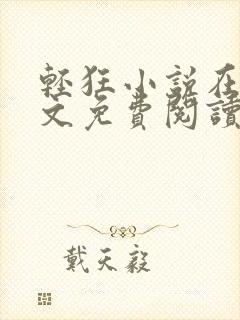 輕狂小說在
文免費閱讀
戴天毅